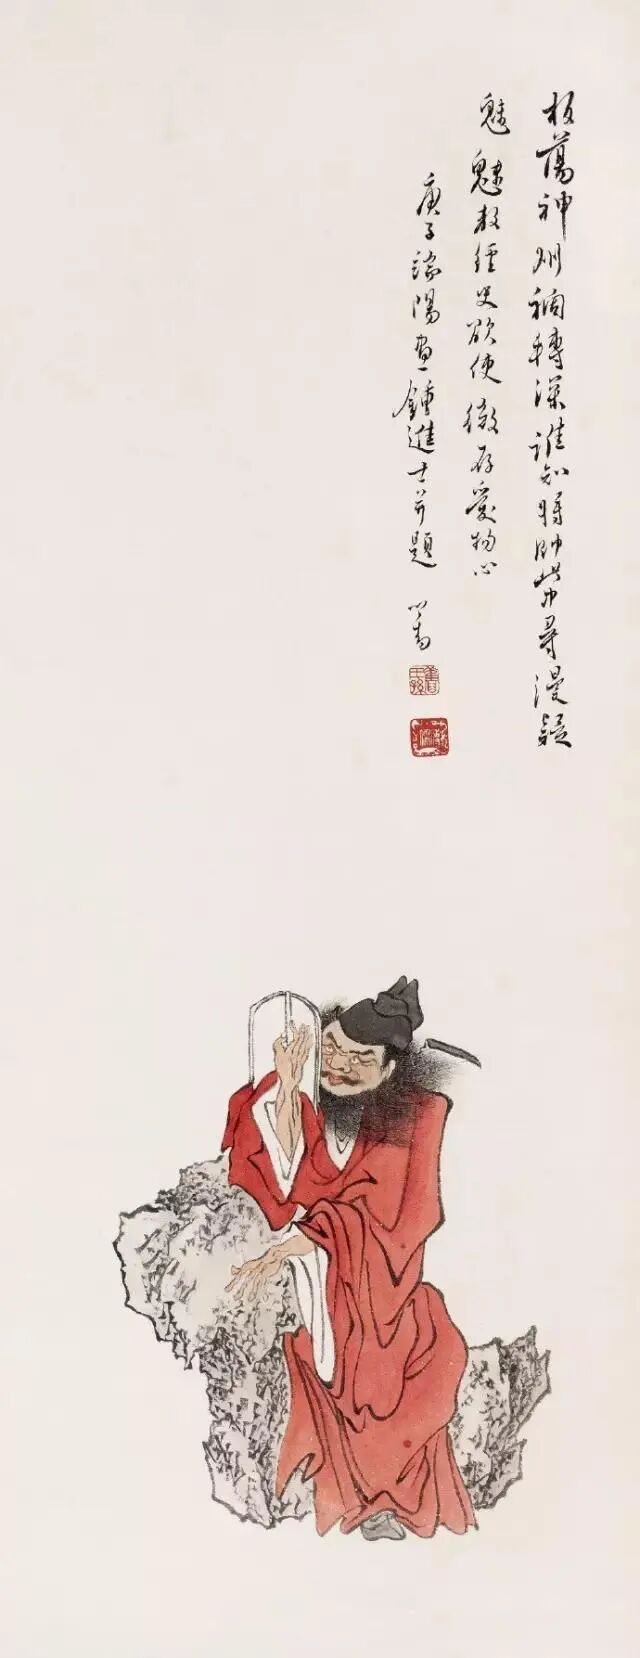 板蕩神州禍轉深誰知將帥此中尋漫疑
魅教經史欲使微存愛物心
庚子端陽畫鍾進士并題 心畬
舊王孫